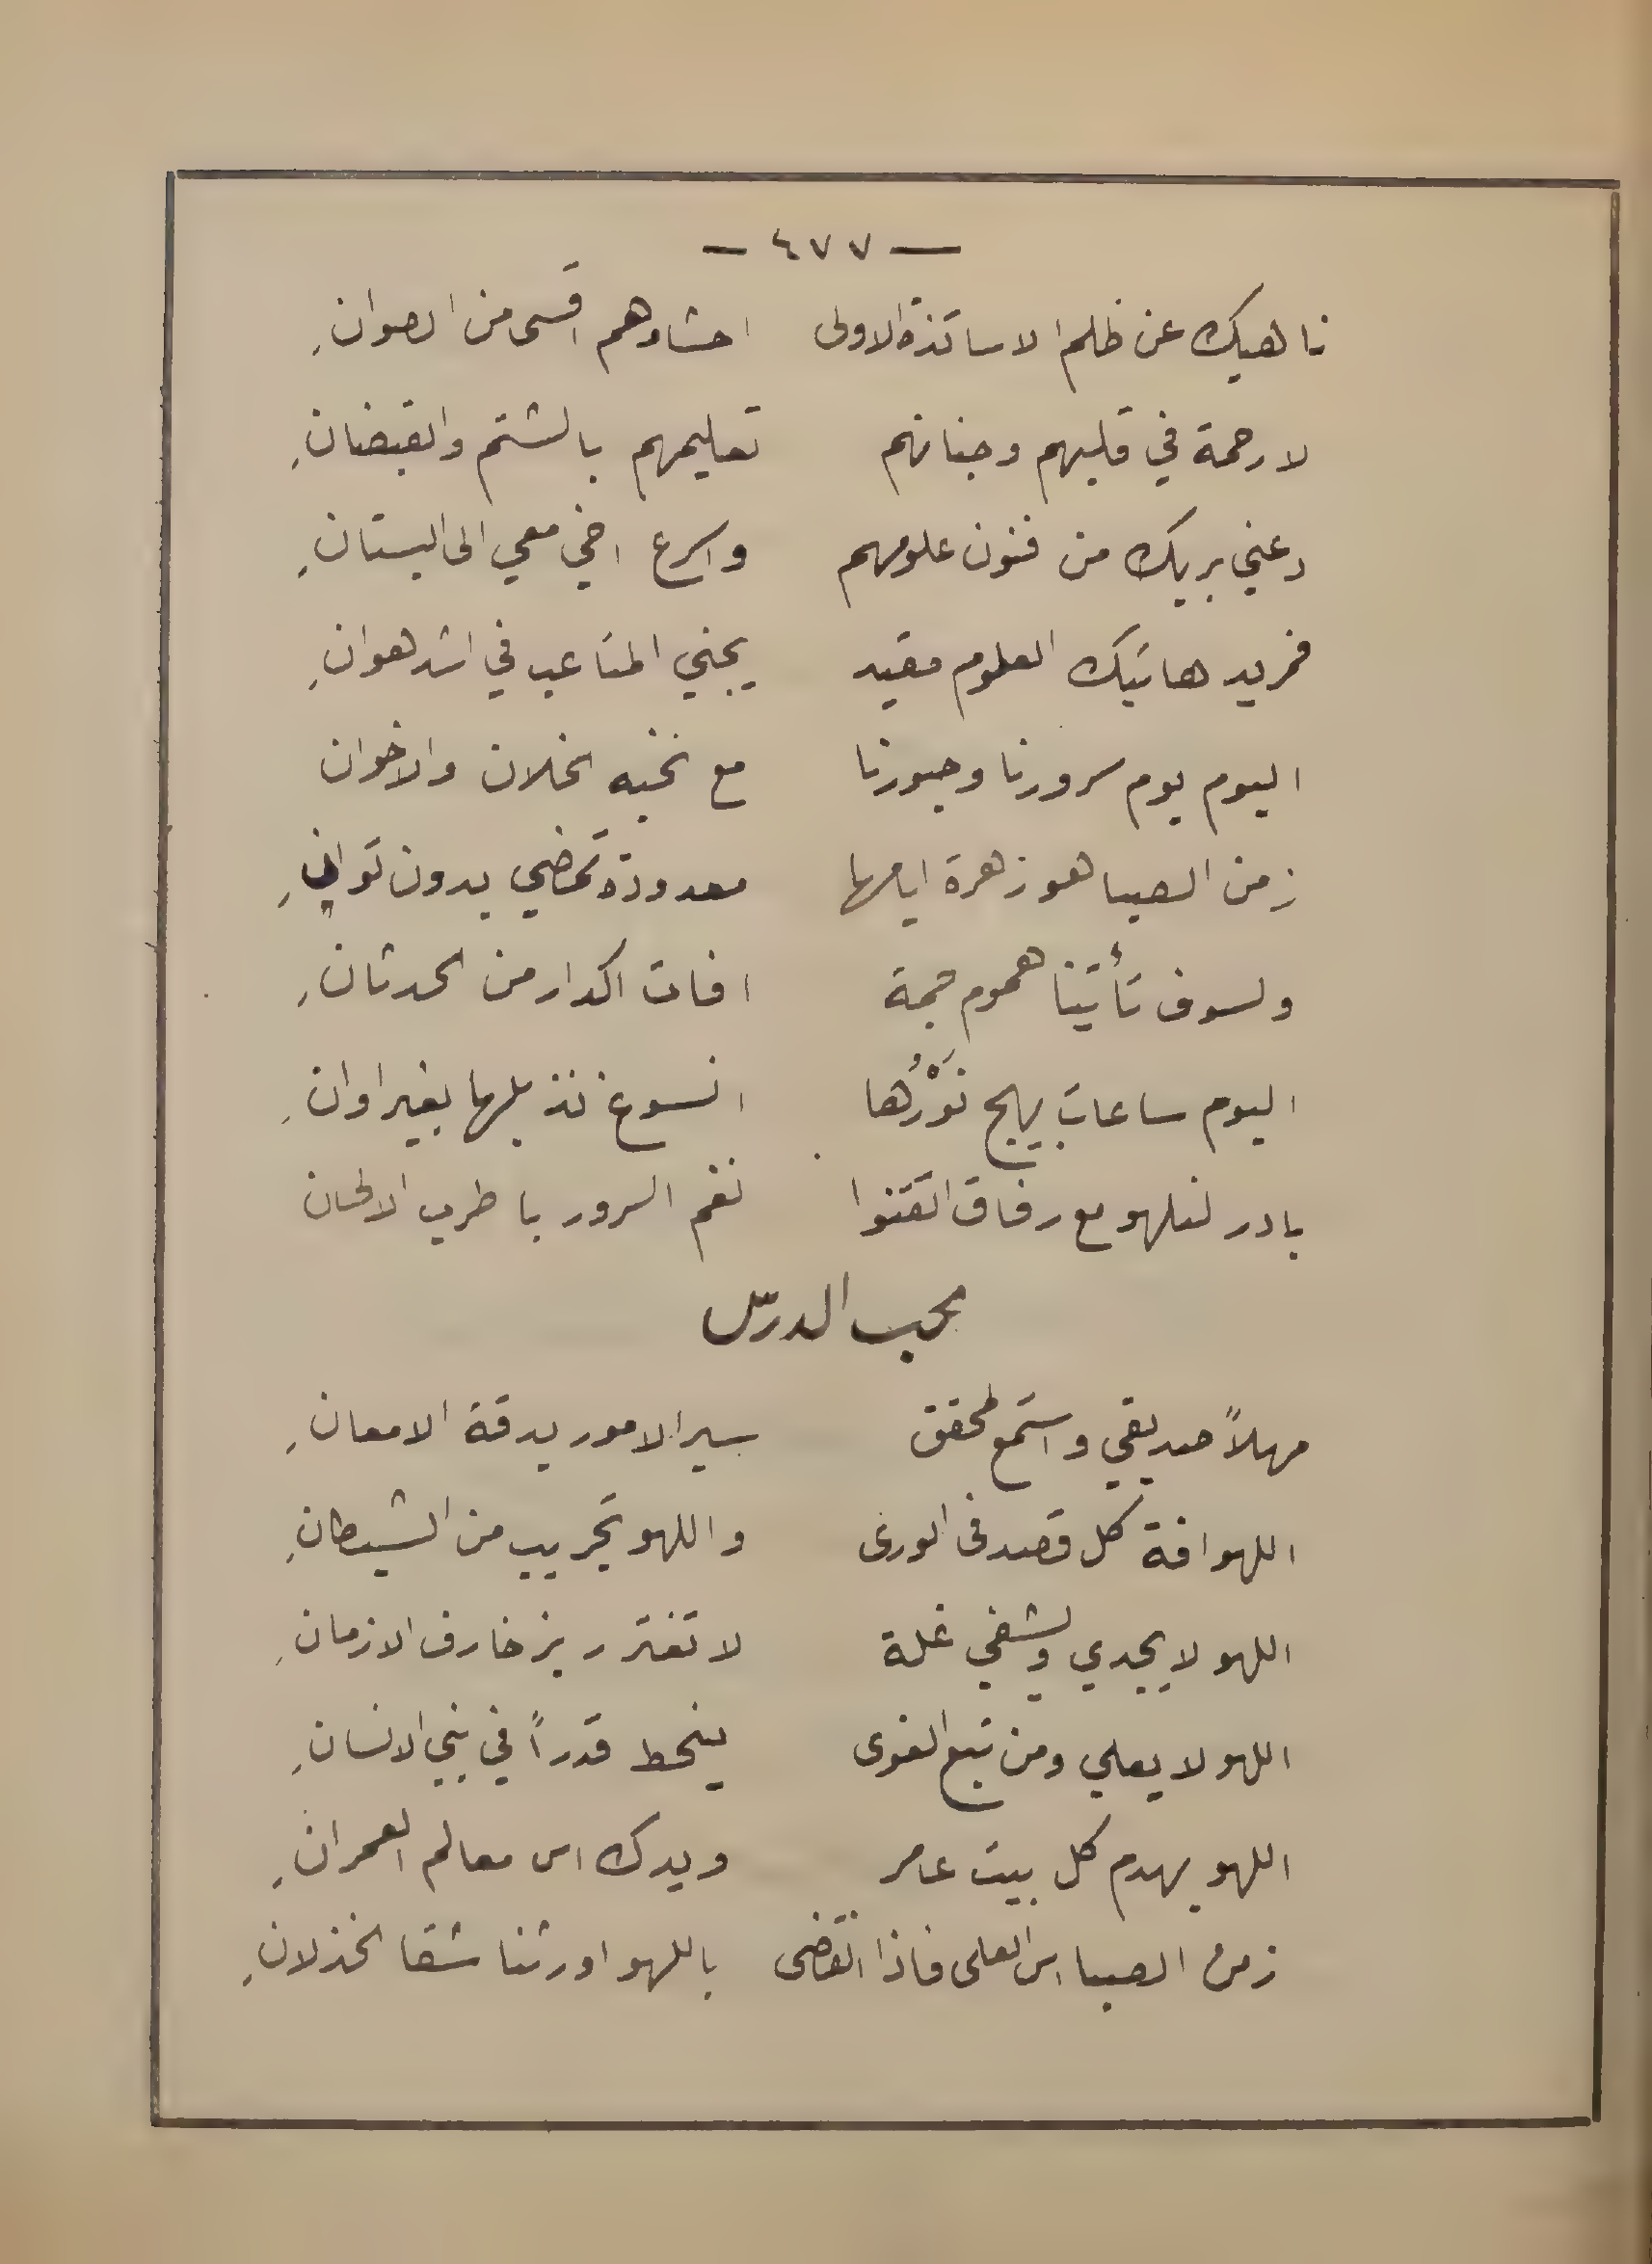 — ٤٧٧ —
ناهيك عن ظلم الاساتذة الاولى احشاؤهم اقسى من الصوانِ
لا رحمة في قلبهم وجنانهم تعليمهم بالشتم والقبضانِ
دعني بربك من فنون علومهم واسرع اخي معي الى البستانِ
فمريد هاتيك العلوم مقيد يجني المتاعب في اشد هوانِ
اليوم يوم سرورنا وحبورنا مع نخبه الخلان والاخوان
زمن الصبا هو زهرة ايامها معدودة تمضي بدون توانيِ
ولسوف تأتينا هموم جمة افات اكدار من الحدثانِ
اليوم ساعات يهيج نَوْرُها انسوغ نذبلها بغير اوانِ
بادر لنلهو مع رفاق اتقنوا نغم السرور باطرب الالحان
محب الدرس
مهلاً صديقي واستمع لمحقق سير الامور بدقة الامعانِ
اللهو افة كل قصد فى الورى واللهو تجريب من الشيطانِ
اللهو لا يجدي ويشفي غلة لا تغترر بزخارف الازمانِ
اللهو لا يعلي ومن تبع الغوى ينحط قدراً في بني الانسانِ
اللهو يهدم كل بيت عامر ويدك اس معالم العمرانِ
زمن الصبا اس العلى فاذا انقضى باللهو اورثنا شقا الخذلانِ